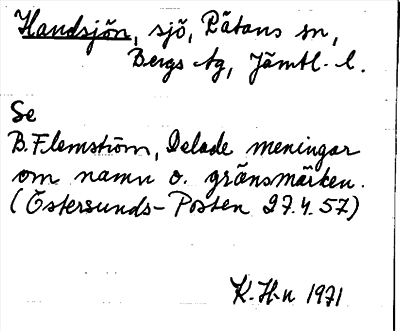 Handsjön, sjö, Rätans sn,
Bergs tg, Jämtl. l.
Se
B. Flemström, Delade meningar
om namn o. gränsmärken.
(Östersunds-Posten 27.4.57)
K. H-n 1971